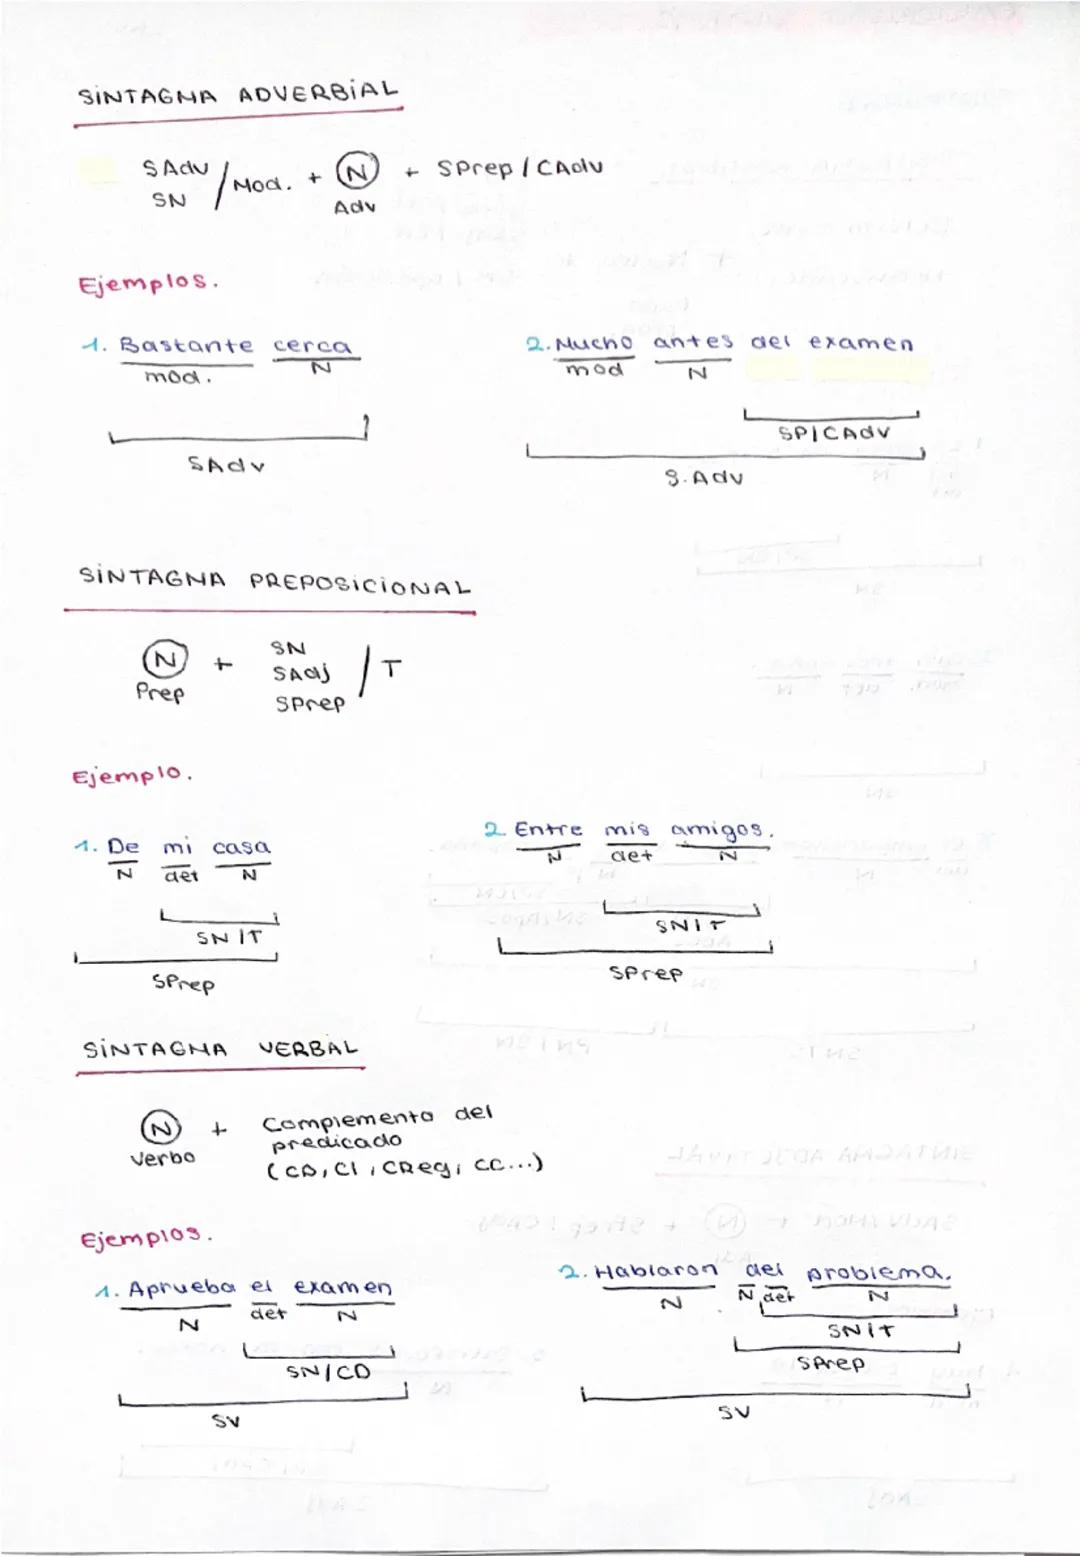 SINTAGMA ADVERBIAL
SAdv
SN / Mod. + N + SPrep / CAdv
Adv
Ejemplos.
1. Bastante cerca
mod. N
SAdv
2. Mucho antes del examen
mod N
SP/CAdv
S.Adv
SINTAGMA PREPOSICIONAL
N + SN
SAdj / T
Prep
SPrep
Ejemplo.
1. De mi casa
N det N
SN/T
SPrep
2 Entre mis amigos.
N det N
SN/T
SPrep
SINTAGMA VERBAL
N + Complemento del
predicado
Verbo
(CD, CI, CReg, CC...)
Ejemplos.
1. Aprueba el examen
N det N
SN/CD
SV
2. Hablaron del problema.
N N det N
SN/T
SPrep
SV